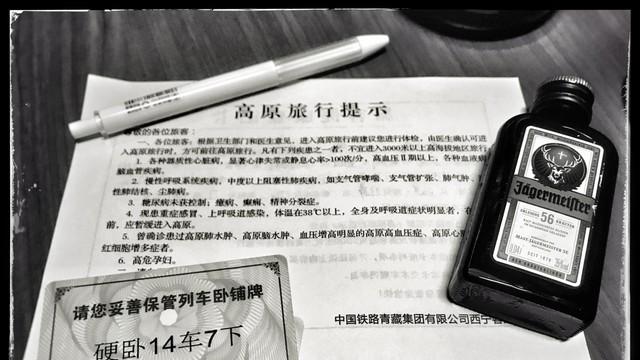 高原旅行提示
尊敬的各位旅客：
一、各位旅客：根据卫生部门和医生意见，进入高原旅行前建议您进行体检，由医生确认可进
入高原旅行时，方可前往高原旅行。凡有下列疾患之一者，不宜进入3000米以上高海拔地区旅行
1. 各种器质性心脏病，显著心律失常或静息心率>100次/分，高血压Ⅱ期以上，各种血液病
脑血管疾病。
2. 慢性呼吸系统疾病，中度以上阻塞性肺疾病，如支气管哮喘、支气管扩张、肺气肿、
性肺结核、尘肺病。
3. 糖尿病未获控制；癔病、癫痫、精神分裂症。
4. 现患重症感冒、上呼吸道感染，体温在38℃以上，全身及呼吸道症状明显者，在
前，应暂缓进入高原。
5. 曾确诊患过高原肺水肿、高原脑水肿、血压增高明显的高原高血压症、高原心
红细胞增多症者。
6. 高危孕妇。
中国铁路青藏集团有限公司西宁
请您妥善保管列车卧铺牌
硬卧14车7下
Jägermeister
56
MAST-JÄGERMEISTER SE
SEIT 1878